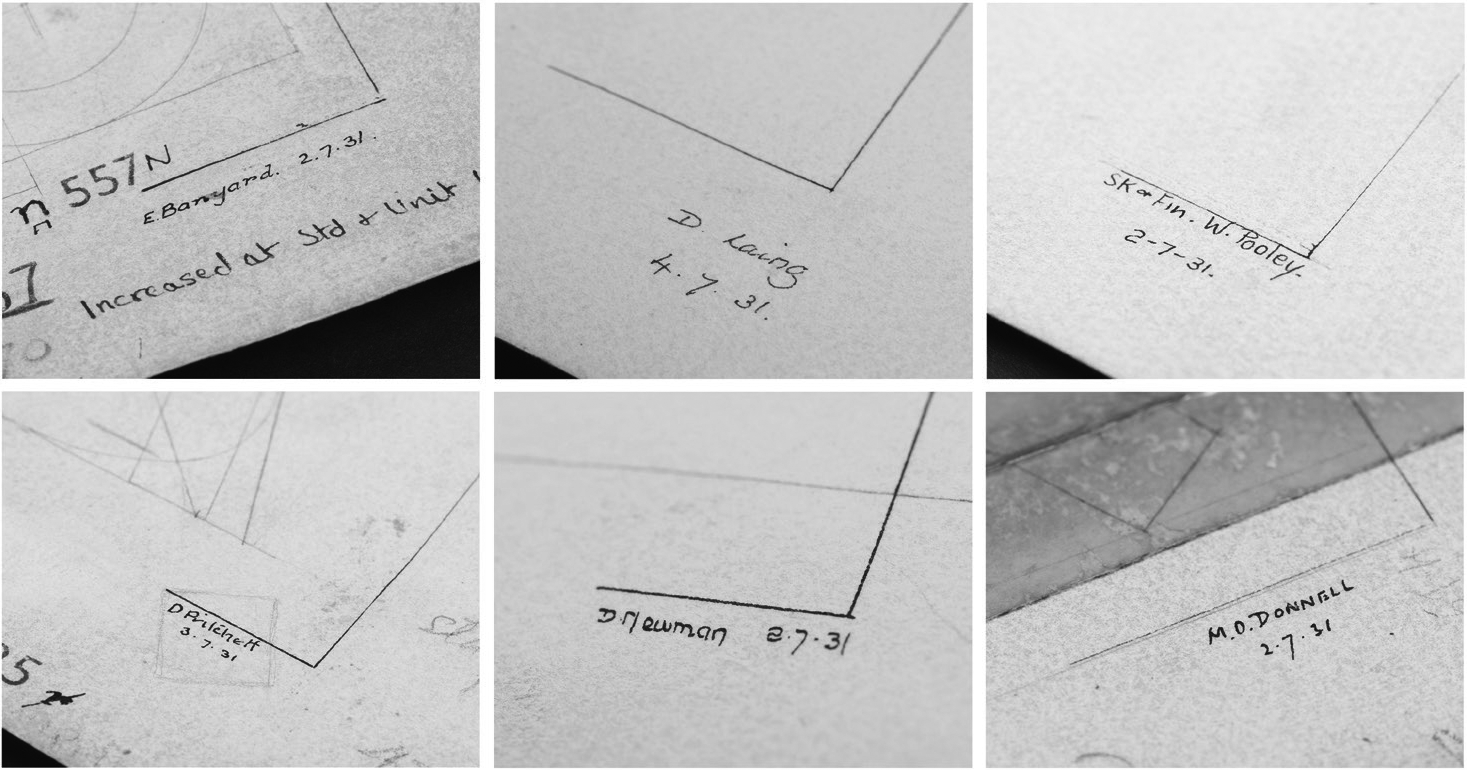 n 557N
E. Banyard. 2.7.31.
Increased at Std & Unit
D. Laing
4.7.31.
SK & Fin. W. Pooley.
2-7-31.
D Pritchett
3.7.31
D. Newman 2.7.31
M.O. DONNELL
2.7.31